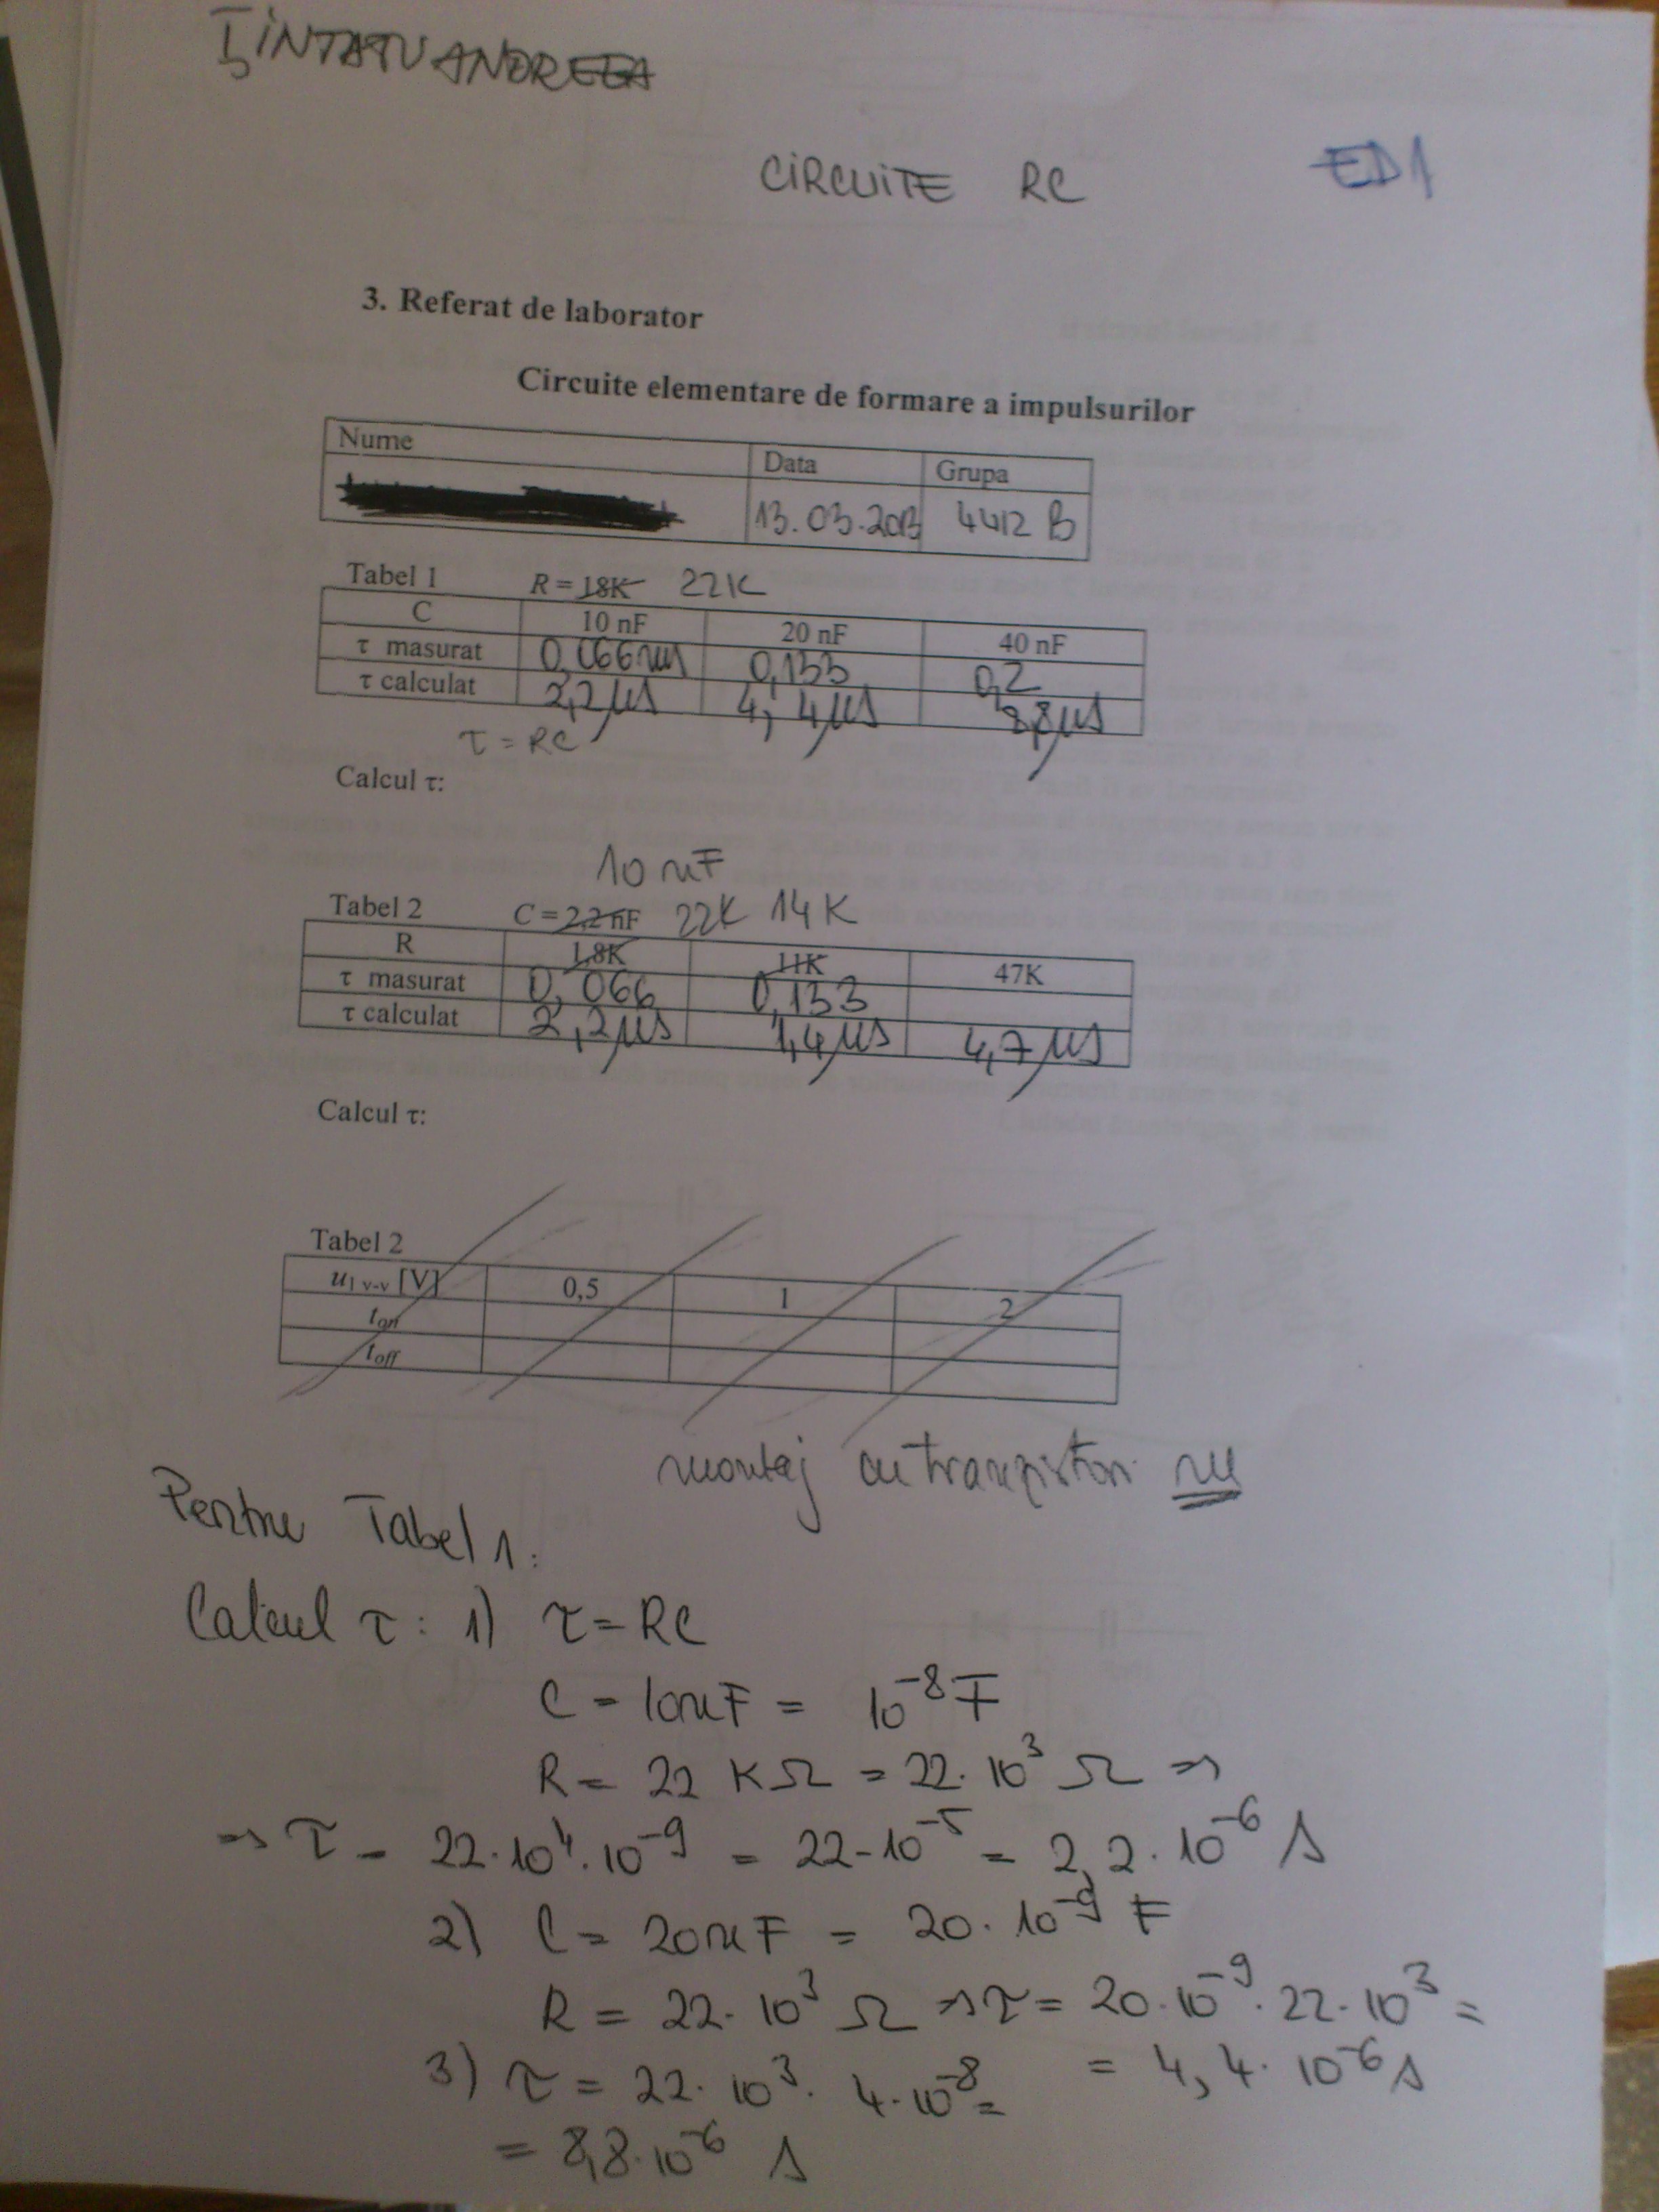 ŢINTATU ANDREEA
CIRCUITE RC
ED1
3. Referat de laborator
Circuite elementare de formare a impulsurilor
Nume Data Grupa
13.03.2013 4412 B
Tabel 1 R = 18K 22K
C 10 nF 20 nF 40 nF
τ masurat 0,066ms 0,133 0,2
τ calculat 2,2 μs 4,4 μs 8,8 μs
τ = RC
Calcul τ:
10 nF
Tabel 2 C = 2,2 nF 22K 14K
R 1,8K 11K 47K
τ masurat 0,066 0,133
τ calculat 2,2 μs 1,4 μs 4,7 μs
Calcul τ:
Tabel 2
u1 v-v [V] 0,5 1 2
ton
toff
montaj cu tranzistor nu
Pentru Tabel 1:
Calcul τ: 1) τ = RC
C = 10nF = 10⁻⁸ F
R = 22 KΩ = 22·10³ Ω ⇒
⇒ τ = 22·10⁴·10⁻⁹ = 22·10⁻⁵ = 2,2·10⁻⁶ s
2) C = 20nF = 20·10⁻⁹ F
R = 22·10³ Ω ⇒ τ = 20·10⁻⁹·22·10³ =
= 4,4·10⁻⁶ s
3) τ = 22·10³·4·10⁻⁸ =
= 8,8·10⁻⁶ s